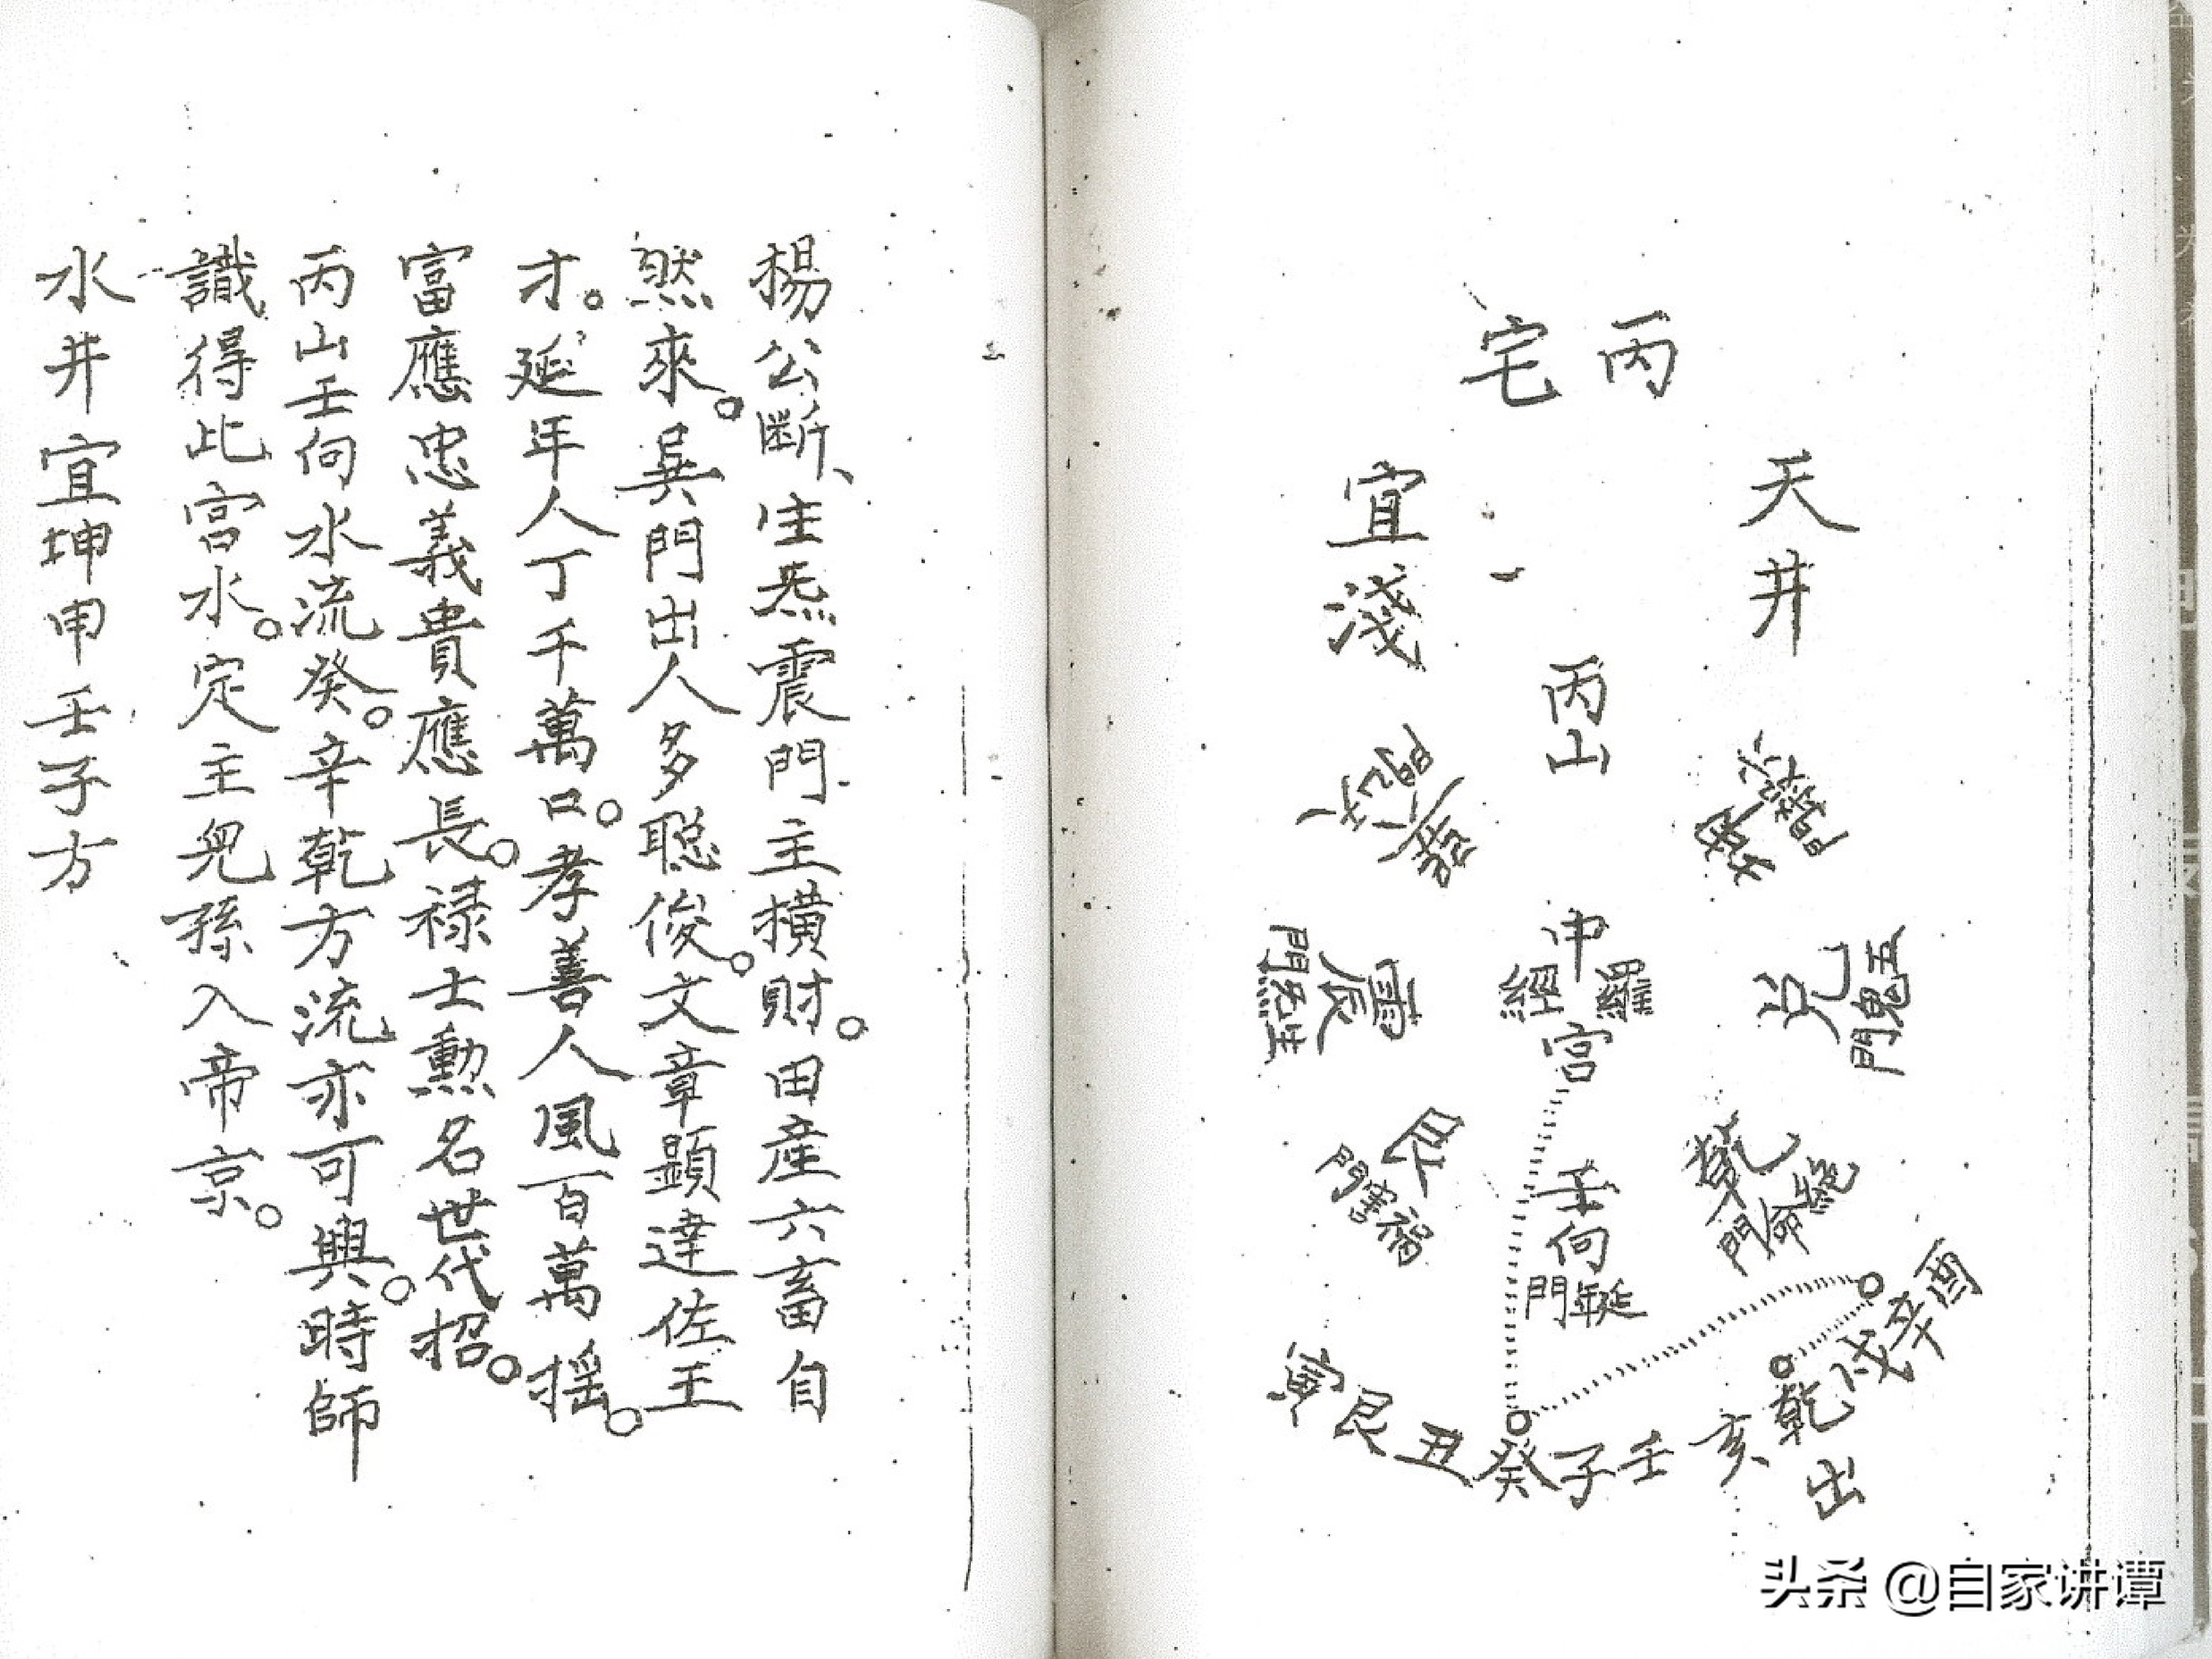 丙宅
天井
宜淺
一
丙山
坤
六煞門
巽
天乙門
中宮
羅經
兌
五鬼門
震
生炁門
乾
絕命門
艮
禍害門
壬向
延年門
酉辛戌乾亥壬子癸丑艮寅
出
楊公斷、生炁震門主横財。田産六畜自
然來。巽門出人多聪俊。文章顕達佐王
才。延年人丁千萬口。孝善人風百萬摇。
富應忠義貴應長。禄士勲名世代招。
丙山壬向水流癸。辛乾方流亦可興。時師
識得此宫水。定主兒孫入帝京。
水井宜坤申壬子方
头条 @自家讲谭